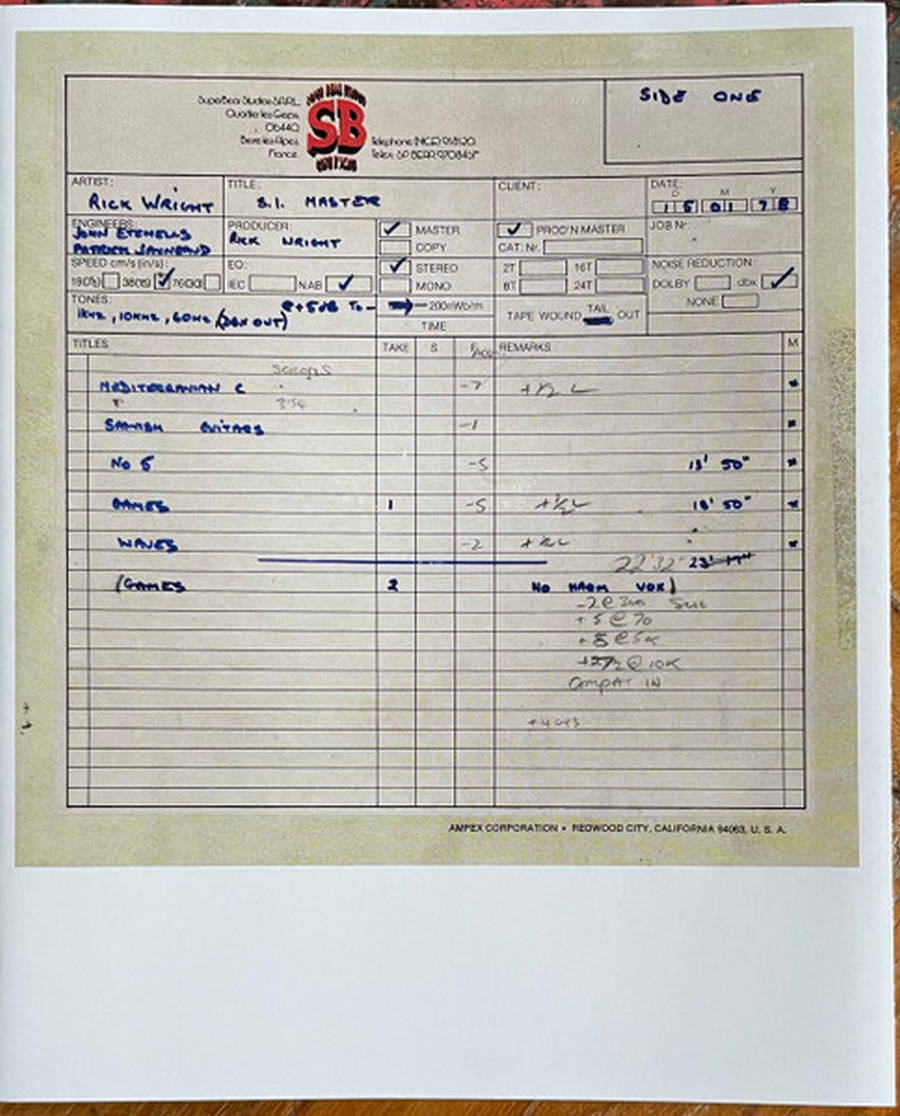 SuperBear Studios SARL
Quartier les Ciaps
06440
Berre les Alpes
France.
SB
Telephone (NICE)
Telex: SP BEAR 970845F
SIDE ONE
ARTIST:
RICK WRIGHT
TITLE:
S.1. MASTER
CLIENT:
DATE:
D M Y
1 5 0 1 7 8
ENGINEERS:
JOHN ETCHELLS
PATRICK JAUNEAUD
PRODUCER:
RICK WRIGHT
MASTER
COPY
PROD'N MASTER
CAT. Nr.
JOB Nr.
SPEED cm/s (in/s):
19(7½) 38(15) 76(30)
EQ:
IEC NAB
STEREO
MONO
2T 16T
8T 24T
NOISE REDUCTION:
DOLBY dbx
NONE
TONES:
1KHZ, 10KHZ, 60HZ (DBX OUT)
@ +5dB To — 200nWb/m
TIME
TAPE WOUND TAIL OUT
TITLES TAKE S REMARKS M
MEDITERRANIAN C -7 +½ L
SPANISH GUITARS -1
No 5 -5 13' 50"
GAMES 1 -5 +½ L 18' 50"
WAVES -2 +½ L
22'32"
(GAMES 2 NO HARM VOX)
+5 @ 70
+5 @ 5K
@ 10K
COMPAT IN
AMPEX CORPORATION • REDWOOD CITY, CALIFORNIA 94063, U. S. A.